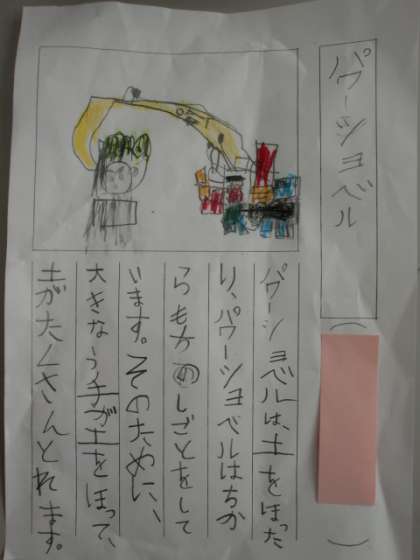 パワーショベル
（　）
パワーショベルは、土をほった
り、パワーショベルはちか
らもちのしごとをして
います。そのために、
大きなう手が土をほって、
土がたくさんとれます。